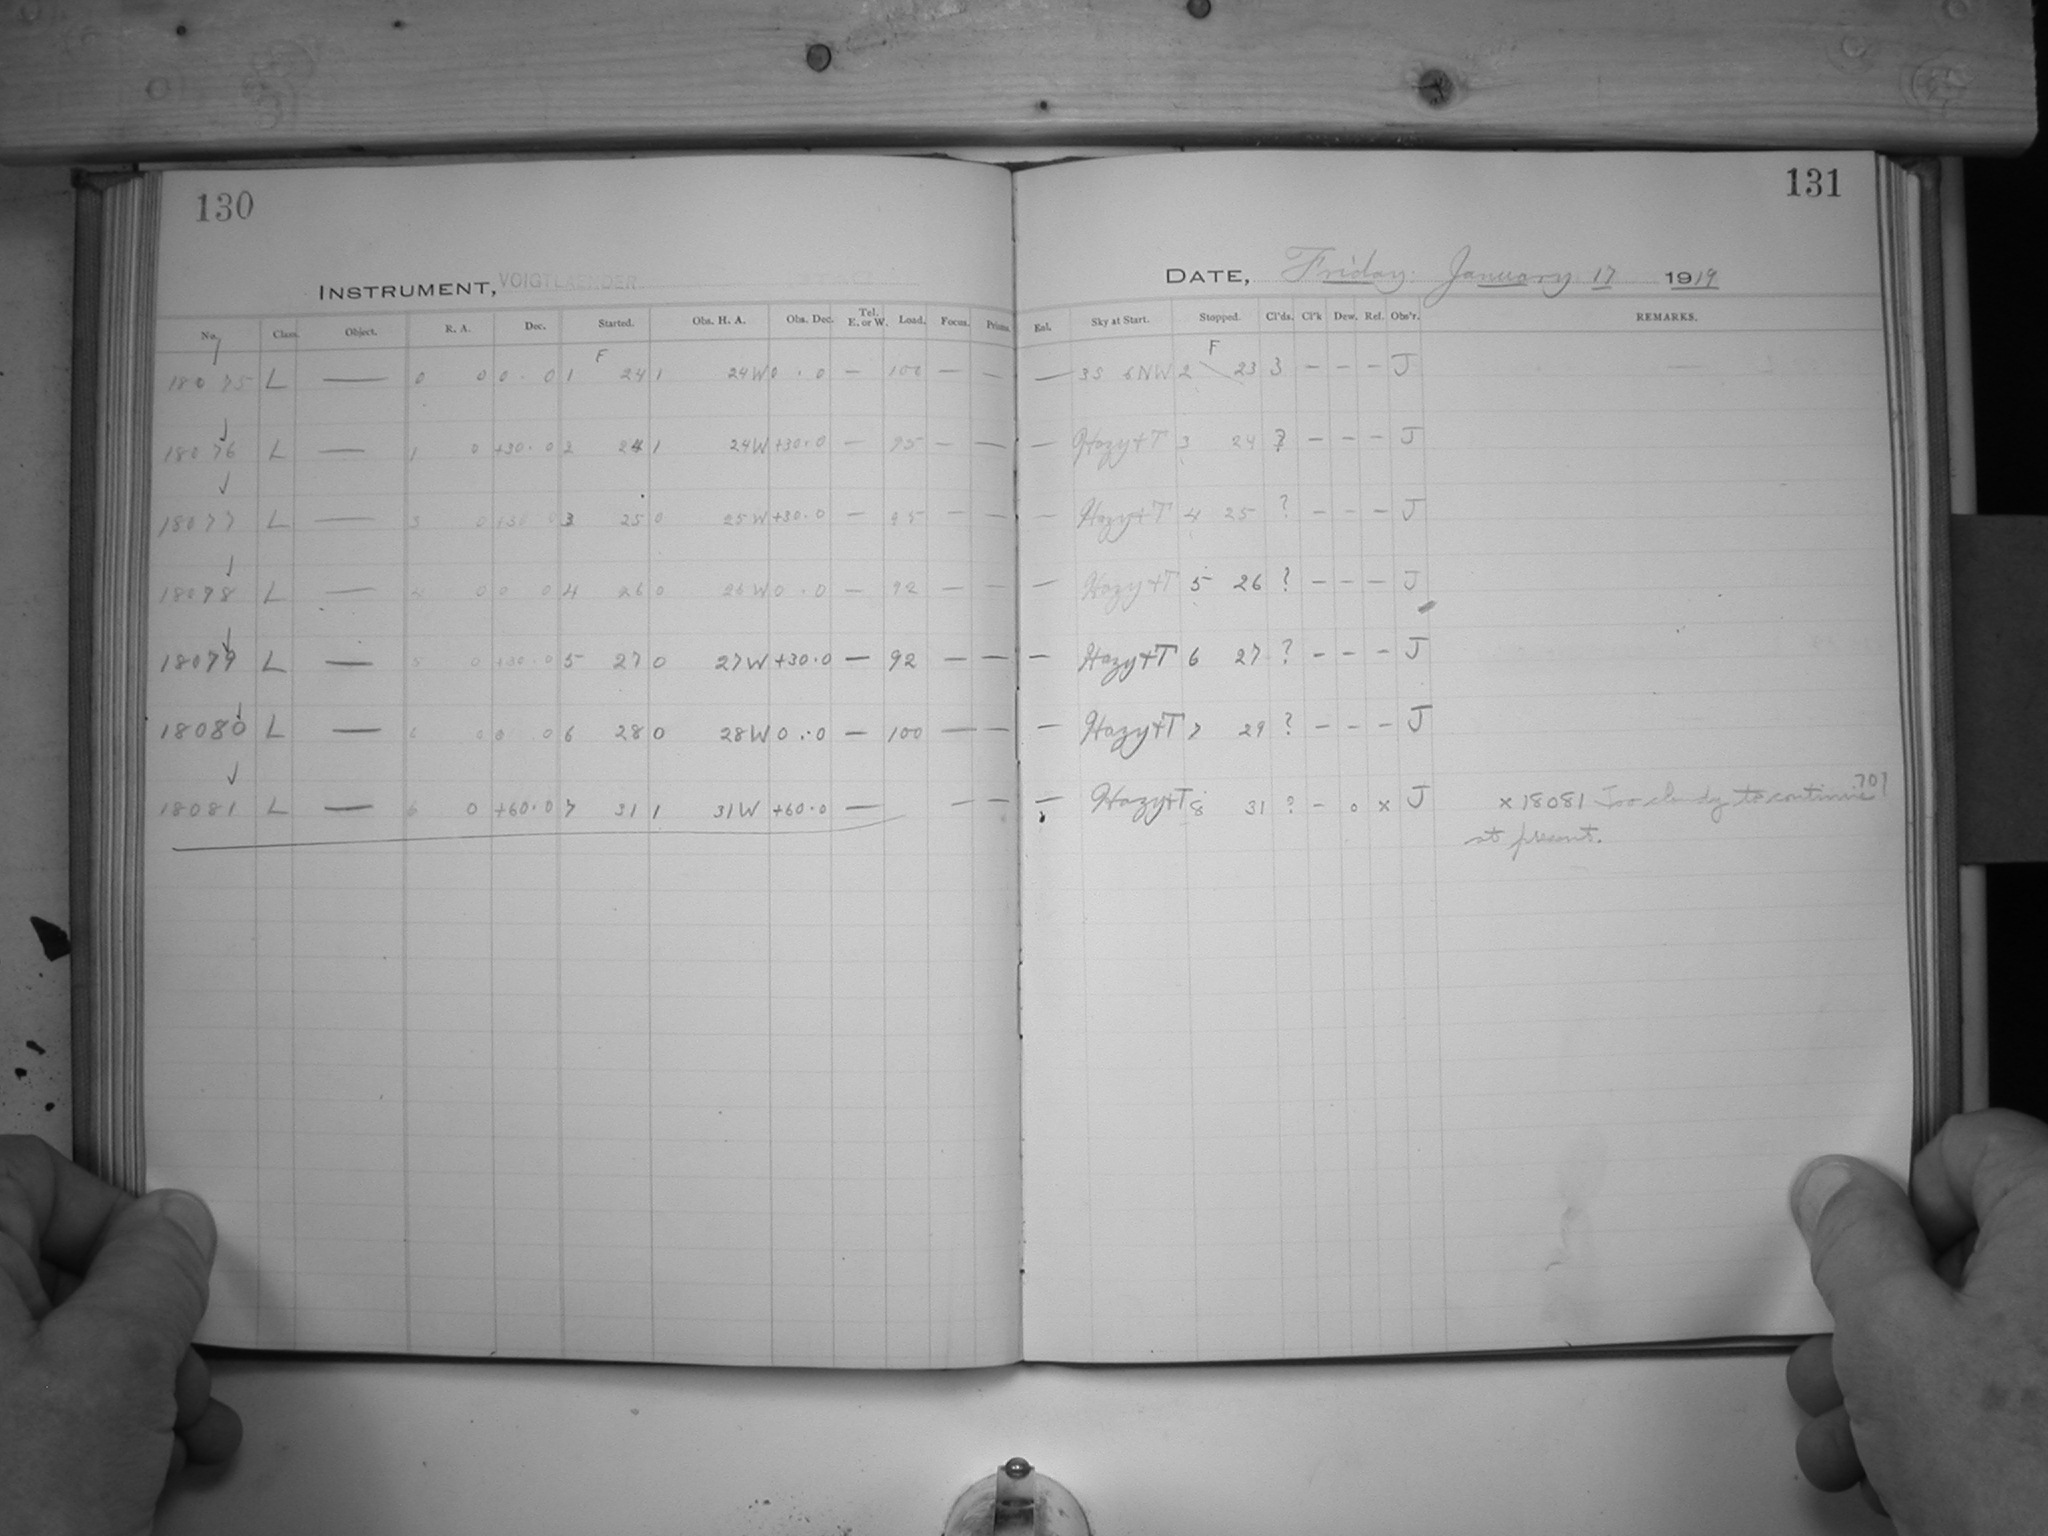 130
131
INSTRUMENT, VOIGTLAENDER
DATE, Friday. January 17 1919
No. Class. Object. R. A. Dec. Started. Obs. H. A. Obs. Dec. Tel. E. or W. Load. Focus. Prisms. Enl. Sky at Start. Stopped. Cl'ds. Cl'k Dew. Rel. Obs'r. REMARKS.
18075 L — 0 0 0 . 0 1 F 24 1 24W 0 . 0 — 100 — — — 3S 6NW 2 F 23 3 – – – J
18076 L — 1 0 +30.0 2 24 1 24W +30.0 — 95 — — — Hazy+T 3 24 ? – – – J
18077 L — 3 0 +30 0 3 25 0 25W +30.0 — 95 — — — Hazy+T 4 25 ? – – – J
18078 L — 0 0 0 4 26 0 26W 0 . 0 — 92 — — — Hazy+T 5 26 ? – – – J
18079 L — 5 0 +30.0 5 27 0 27W +30.0 — 92 — — — Hazy+T 6 27 ? – – – J
18080 L — 0 0 . 0 6 28 0 28W 0 . 0 — 100 — — — Hazy+T 7 29 ? – – – J
18081 L — 6 0 +60.0 7 31 1 31W +60.0 — — — — Hazy+T 8 31 ? – 0 x J x 18081 Too cloudy to continue
at present.